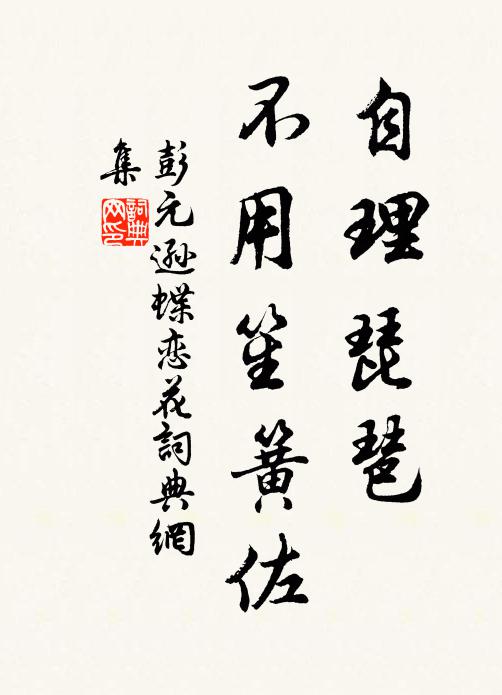 自理琵琶
不用笙簧佐
彭元遜蝶恋花詞典網
集
詞典
网印